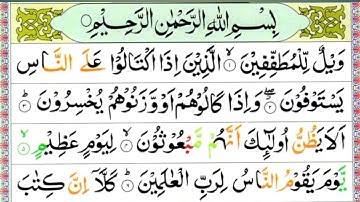 بِسْمِ اللّٰهِ الرَّحْمٰنِ الرَّحِيْمِ
وَيْلٌ لِّلْمُطَفِّفِيْنَ ۙ﴿۱﴾ الَّذِيْنَ اِذَا اكْتَالُوْا عَلَى النَّاسِ
يَسْتَوْفُوْنَ ۖ﴿۲﴾ وَاِذَا كَالُوْهُمْ اَوْ وَّزَنُوْهُمْ يُخْسِرُوْنَ ؕ﴿۳﴾
اَلَا يَظُنُّ اُولٰٓئِكَ اَنَّهُمْ مَّبْعُوْثُوْنَ ۙ﴿۴﴾ لِيَوْمٍ عَظِيْمٍ ۙ﴿۵﴾
يَّوْمَ يَقُوْمُ النَّاسُ لِرَبِّ الْعٰلَمِيْنَ ؕ﴿۶﴾ كَلَّاۤ اِنَّ كِتٰبَ